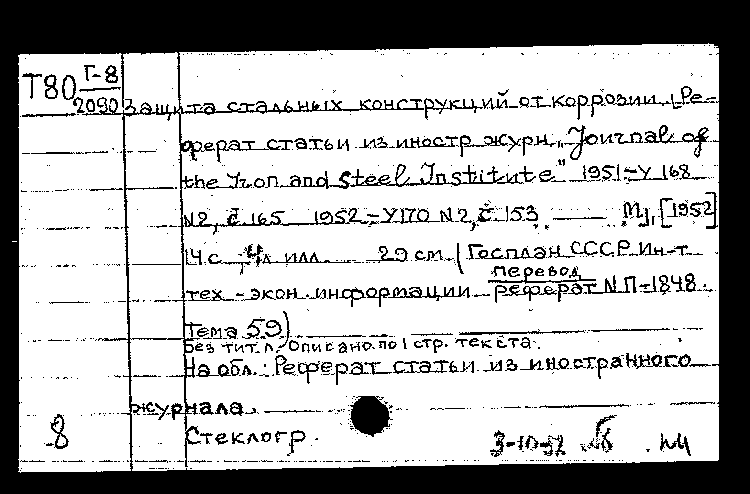 Т80 Г-8
2090
Защита стальных конструкций от коррозии. [Ре-
ферат статьи из иностр журн. „Journal of
the Iron and Steel Institute" 1951-V 168
N2, с. 165 1952-V170 N2, с. 153 — М], [1952]
14 с., илл. 29 см (Госплан СССР. Ин-т
тех.-экон. информации. перевод
реферат N П-1848.
Тема 59)
Без тит. л. Описано по 1 стр. текста.
На обл.: Реферат статьи из иностранного
журнала.
8 Стеклогр. 3-10-52